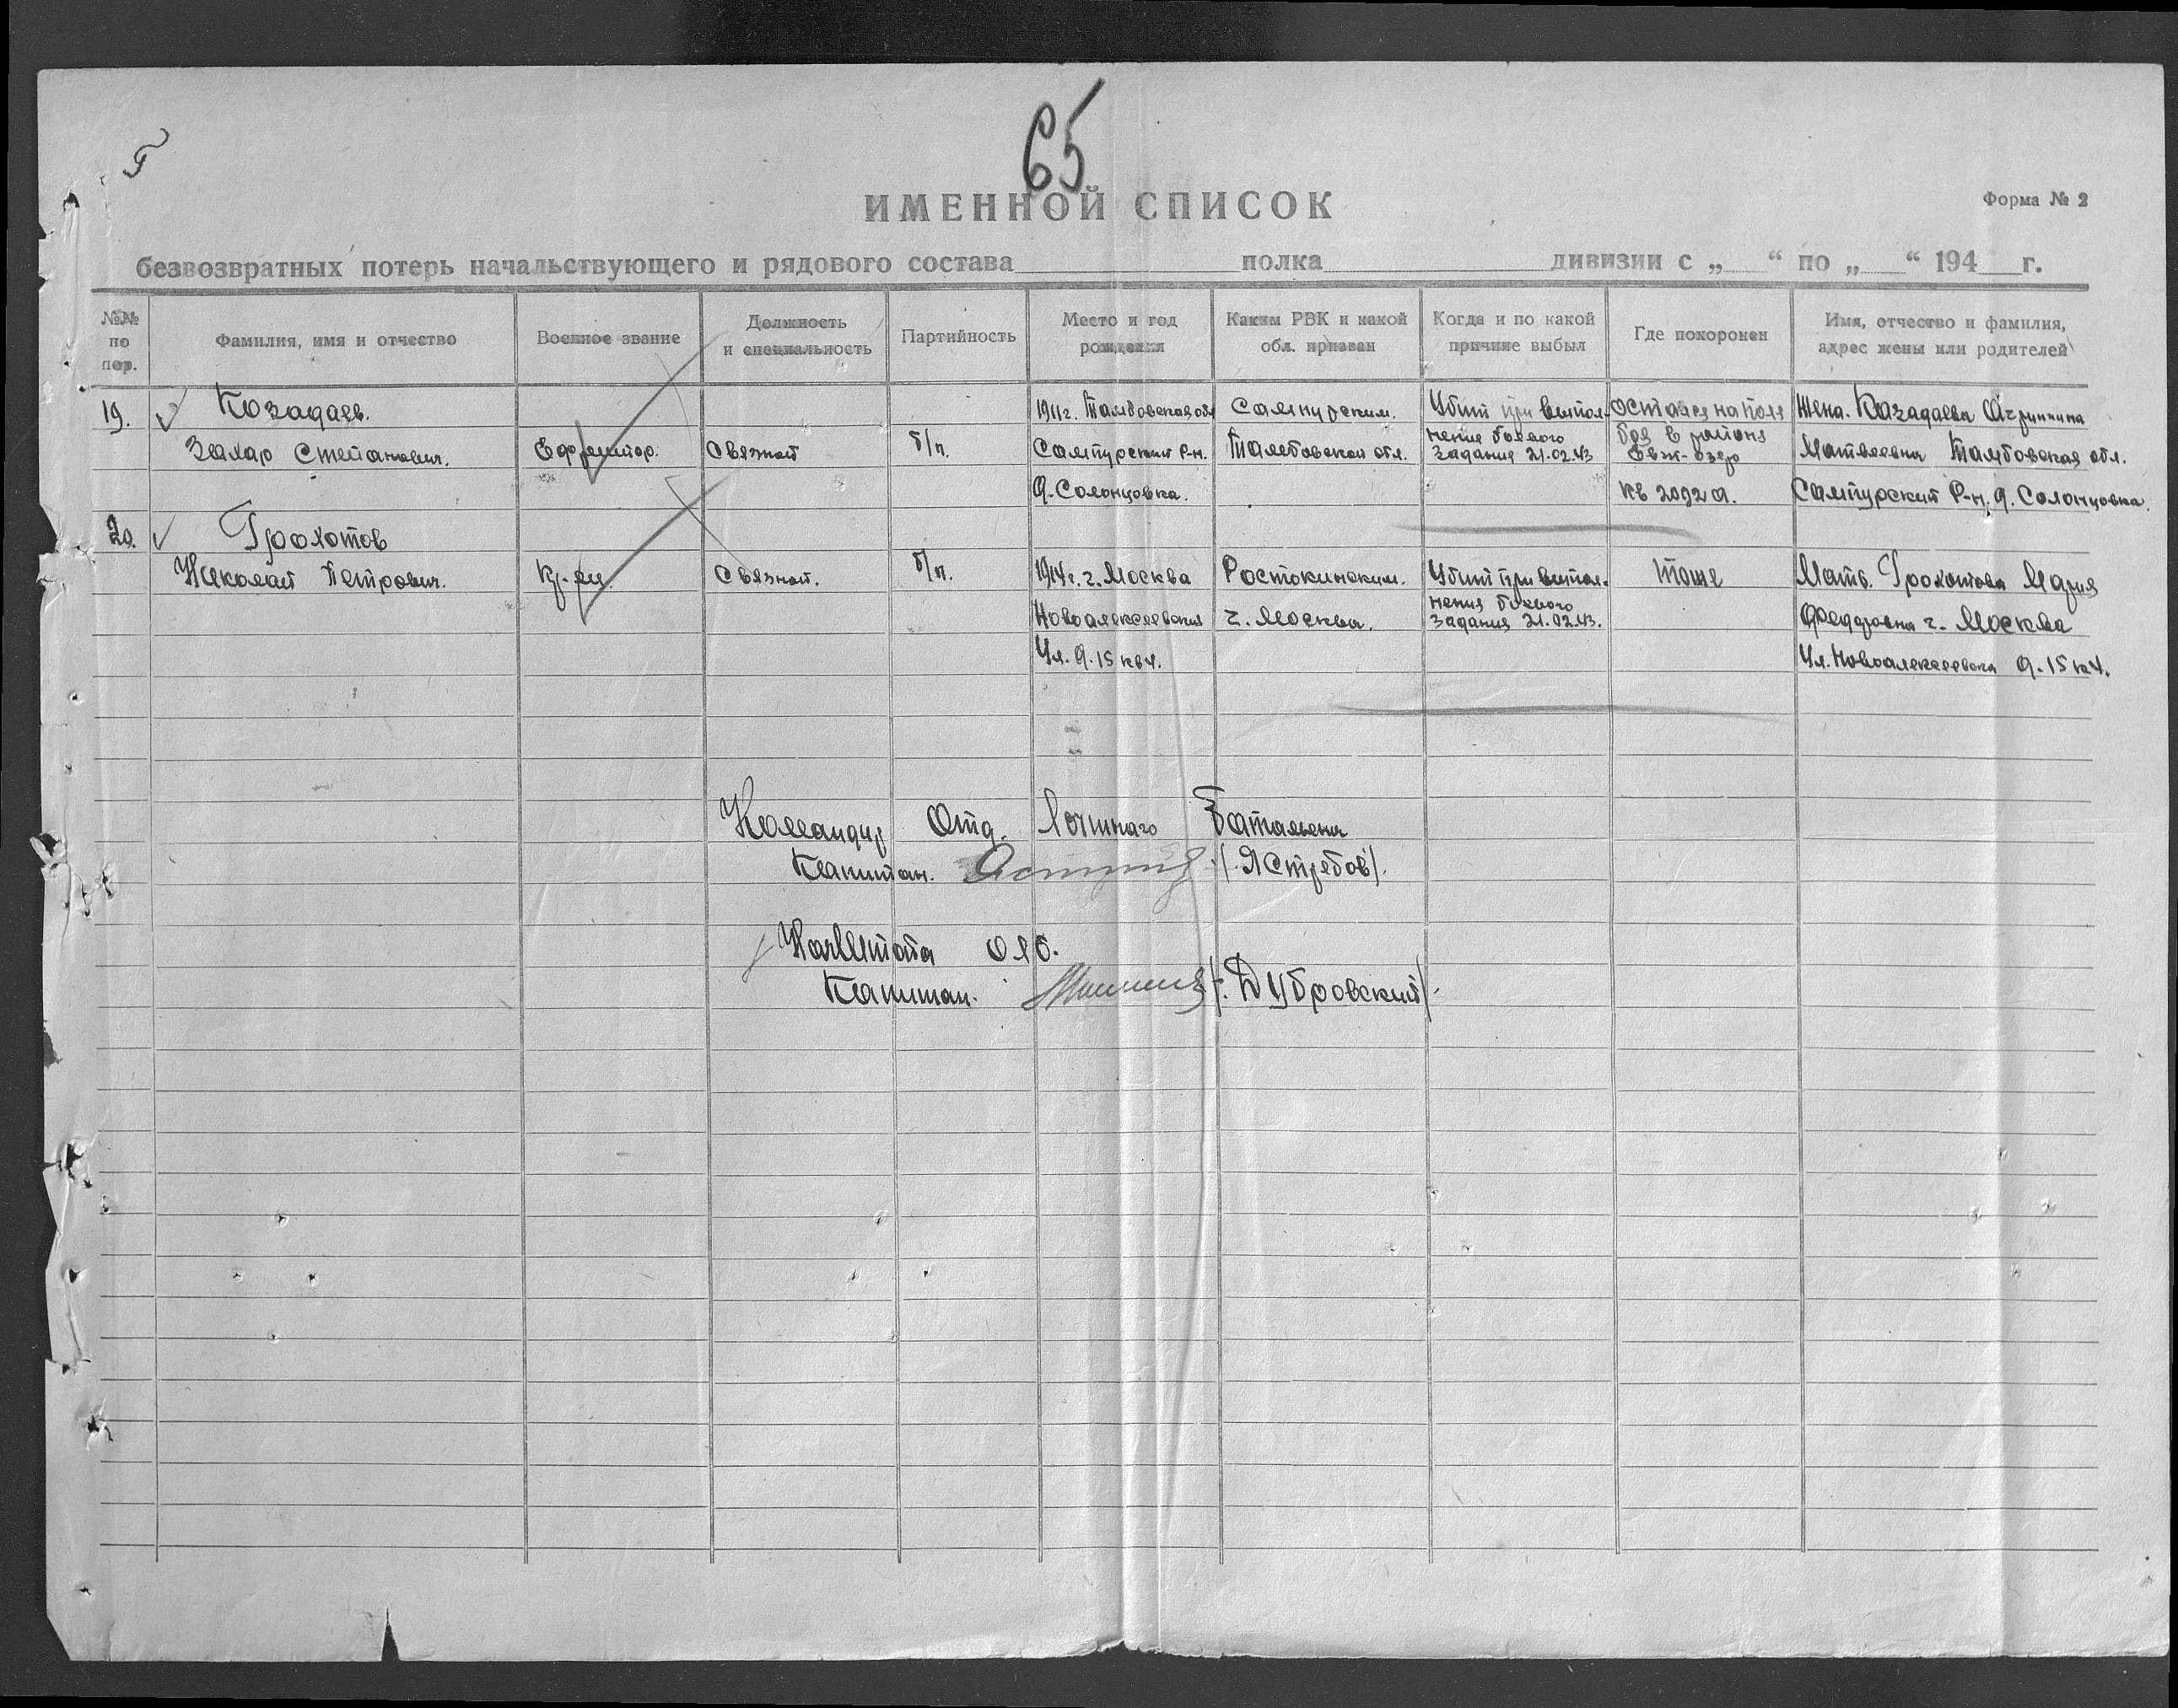 65
ИМЕННОЙ СПИСОК
Форма № 2
безвозвратных потерь начальствующего и рядового состава полка дивизии с „ “ по „ “ 194 г.
№№ по пор.
Фамилия, имя и отчество
Военное звание
Должность и специальность
Партийность
Место и год рождения
Каким РВК и какой обл. призван
Когда и по какой причине выбыл
Где похоронен
Имя, отчество и фамилия, адрес жены или родителей
19. Козадаев. 1911г. Тамбовская обл Сампурским. Убит при выпол- остался на поле Жена. Казадаева Агриппина
Захар Степанович. Ефрейтор. Связной б/п. Сампурский р-н. Тамбовской обл. нения боевого задания 21.02.43 боя в районе озеро Матвеевна Тамбовская обл.
д. Солонцовка. кв 2092 д. Сампурский р-н. д. Солонцовка.
20. Грохотов
Николай Петрович. Кр-ец. Связной. б/п. 1914г. г. Москва Ростокинским. Убит при выпол- тоже Мать. Грохотова Мария
Новоалексеевская г. Москва. нения боевого задания 21.02.43. Федоровна г. Москва
Ул. д. 15 кв 4. Ул. Новоалексеевская д. 15 кв 4.
Командир Отд. Лыжнаго Батальена
Капитан. /. Ястребов /.
НачШтаба ОЛБ.
Капитан. /. Дубровский /.